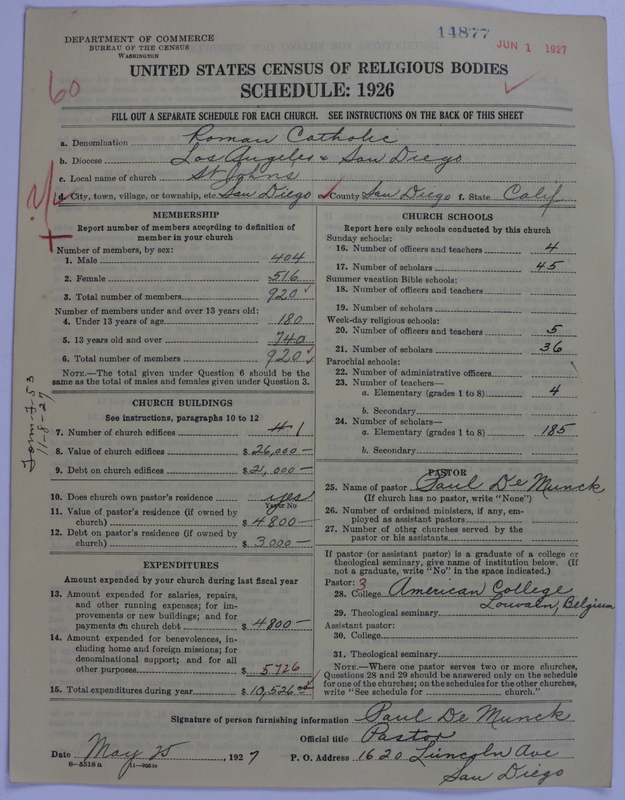 14877
JUN 1 1927
DEPARTMENT OF COMMERCE
BUREAU OF THE CENSUS
WASHINGTON
60
UNITED STATES CENSUS OF RELIGIOUS BODIES
SCHEDULE: 1926
FILL OUT A SEPARATE SCHEDULE FOR EACH CHURCH. SEE INSTRUCTIONS ON THE BACK OF THIS SHEET
a. Denomination Roman Catholic
b. Diocese Los Angeles & San Diego
c. Local name of church St Johns
d. City, town, village, or township, etc. San Diego e. County San Diego f. State Calif
MEMBERSHIP
Report number of members according to definition of
member in your church
Number of members, by sex:
1. Male 404
2. Female 516
3. Total number of members 920
Number of members under and over 13 years old:
4. Under 13 years of age 180
5. 13 years old and over 740
6. Total number of members 920
NOTE.—The total given under Question 6 should be the
same as the total of males and females given under Question 3.
Form 7-53
11-8-27
CHURCH BUILDINGS
See instructions, paragraphs 10 to 12
7. Number of church edifices 1
8. Value of church edifices $ 26,000 —
9. Debt on church edifices $ 21,000 —
10. Does church own pastor's residence yes
Yes or No
11. Value of pastor's residence (if owned by
church) $ 4800 —
12. Debt on pastor's residence (if owned by
church) $ 3000 —
EXPENDITURES
Amount expended by your church during last fiscal year
13. Amount expended for salaries, repairs,
and other running expenses; for im-
provements or new buildings; and for
payments on church debt $ 4800 —
14. Amount expended for benevolences, in-
cluding home and foreign missions; for
denominational support; and for all
other purposes $ 5726
15. Total expenditures during year $ 10,526.00
CHURCH SCHOOLS
Report here only schools conducted by this church
Sunday schools:
16. Number of officers and teachers 4
17. Number of scholars 45
Summer vacation Bible schools:
18. Number of officers and teachers
19. Number of scholars
Week-day religious schools:
20. Number of officers and teachers 5
21. Number of scholars 36
Parochial schools:
22. Number of administrative officers
23. Number of teachers—
a. Elementary (grades 1 to 8) 4
b. Secondary
24. Number of scholars—
a. Elementary (grades 1 to 8) 185
b. Secondary
PASTOR
25. Name of pastor Paul De Munck
(If church has no pastor, write "None")
26. Number of ordained ministers, if any, em-
ployed as assistant pastors
27. Number of other churches served by the
pastor or his assistants
If pastor (or assistant pastor) is a graduate of a college or
theological seminary, give name of institution below. (If
not a graduate, write "No" in the space indicated.)
Pastor: 3
28. College American College
Louvain, Belgium
29. Theological seminary
Assistant pastor:
30. College
31. Theological seminary
NOTE.—Where one pastor serves two or more churches,
Questions 28 and 29 should be answered only on the schedule
for one of the churches; on the schedules for the other churches,
write "See schedule for church."
Signature of person furnishing information Paul De Munck
Official title Pastor
Date May 25, 1927 P. O. Address 1620 Lincoln Ave
San Diego
8—5518 a 11—9054a